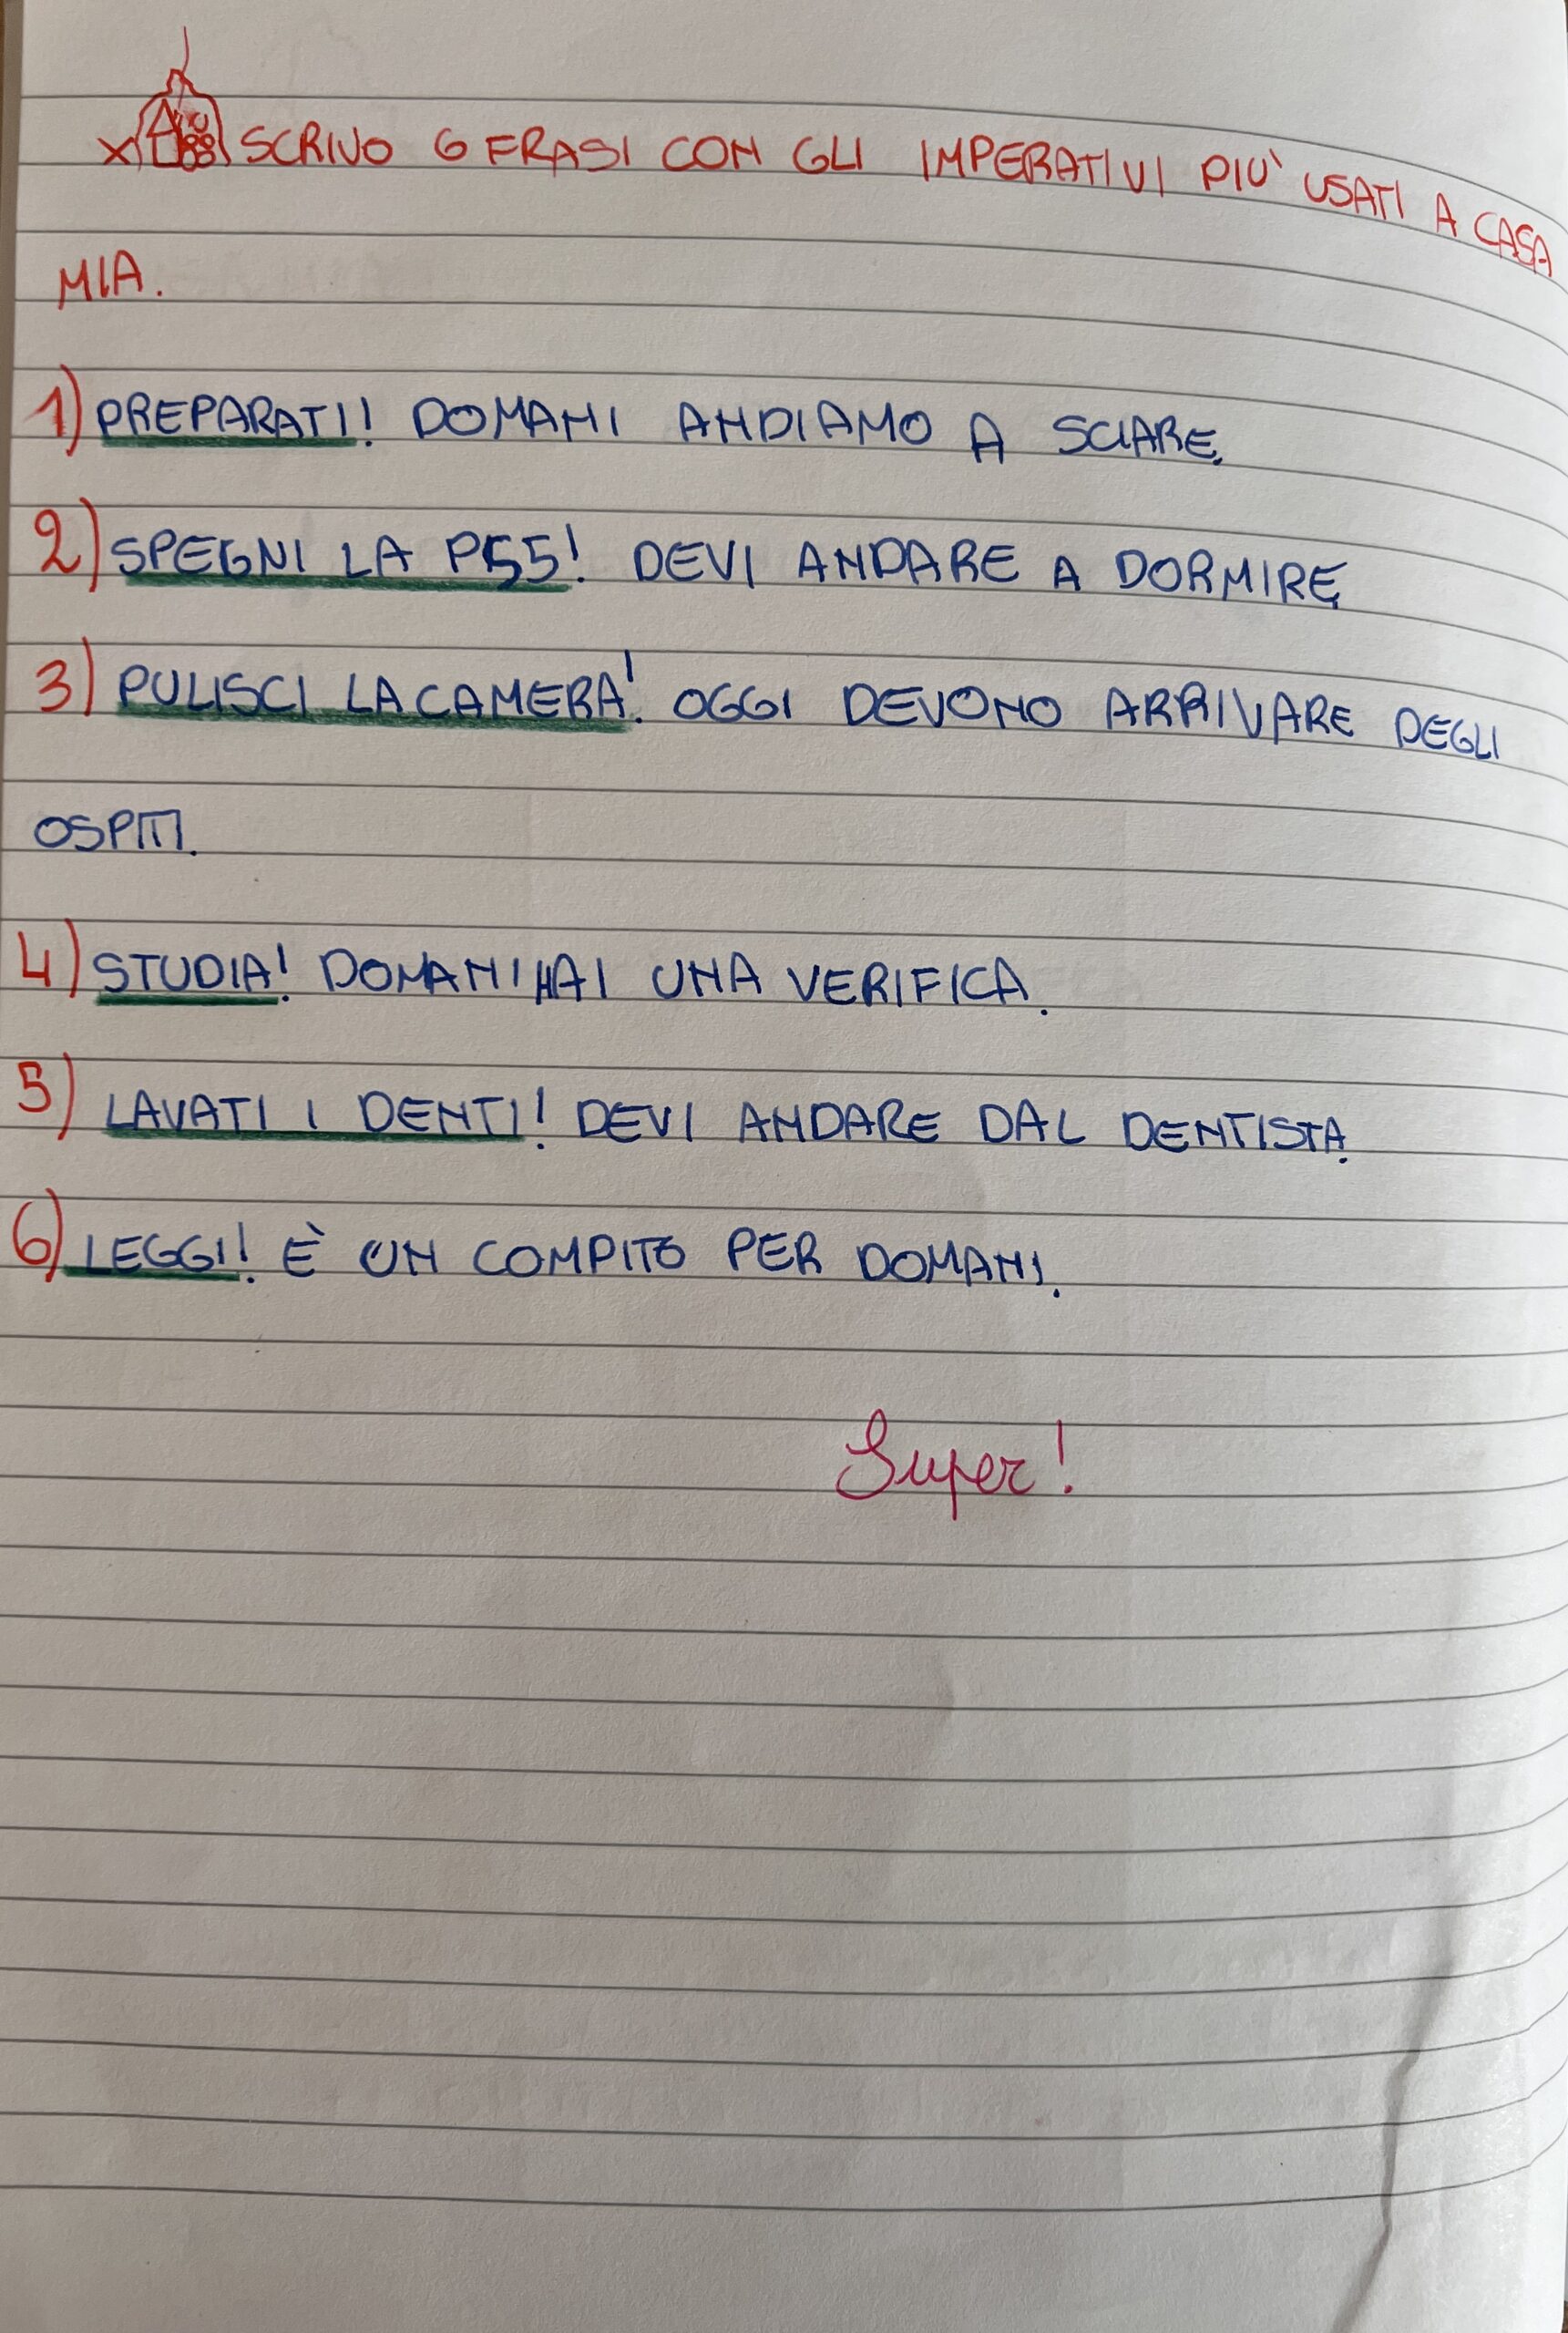 X SCRIVO 6 FRASI CON GLI IMPERATIVI PIU' USATI A CASA
MIA.
1) PREPARATI! DOMANI ANDIAMO A SCIARE.
2) SPEGNI LA PS5! DEVI ANDARE A DORMIRE.
3) PULISCI LA CAMERA! OGGI DEVONO ARRIVARE DEGLI
OSPITI.
4) STUDIA! DOMANI HAI UNA VERIFICA.
5) LAVATI I DENTI! DEVI ANDARE DAL DENTISTA.
6) LEGGI! È UN COMPITO PER DOMANI.
Super!